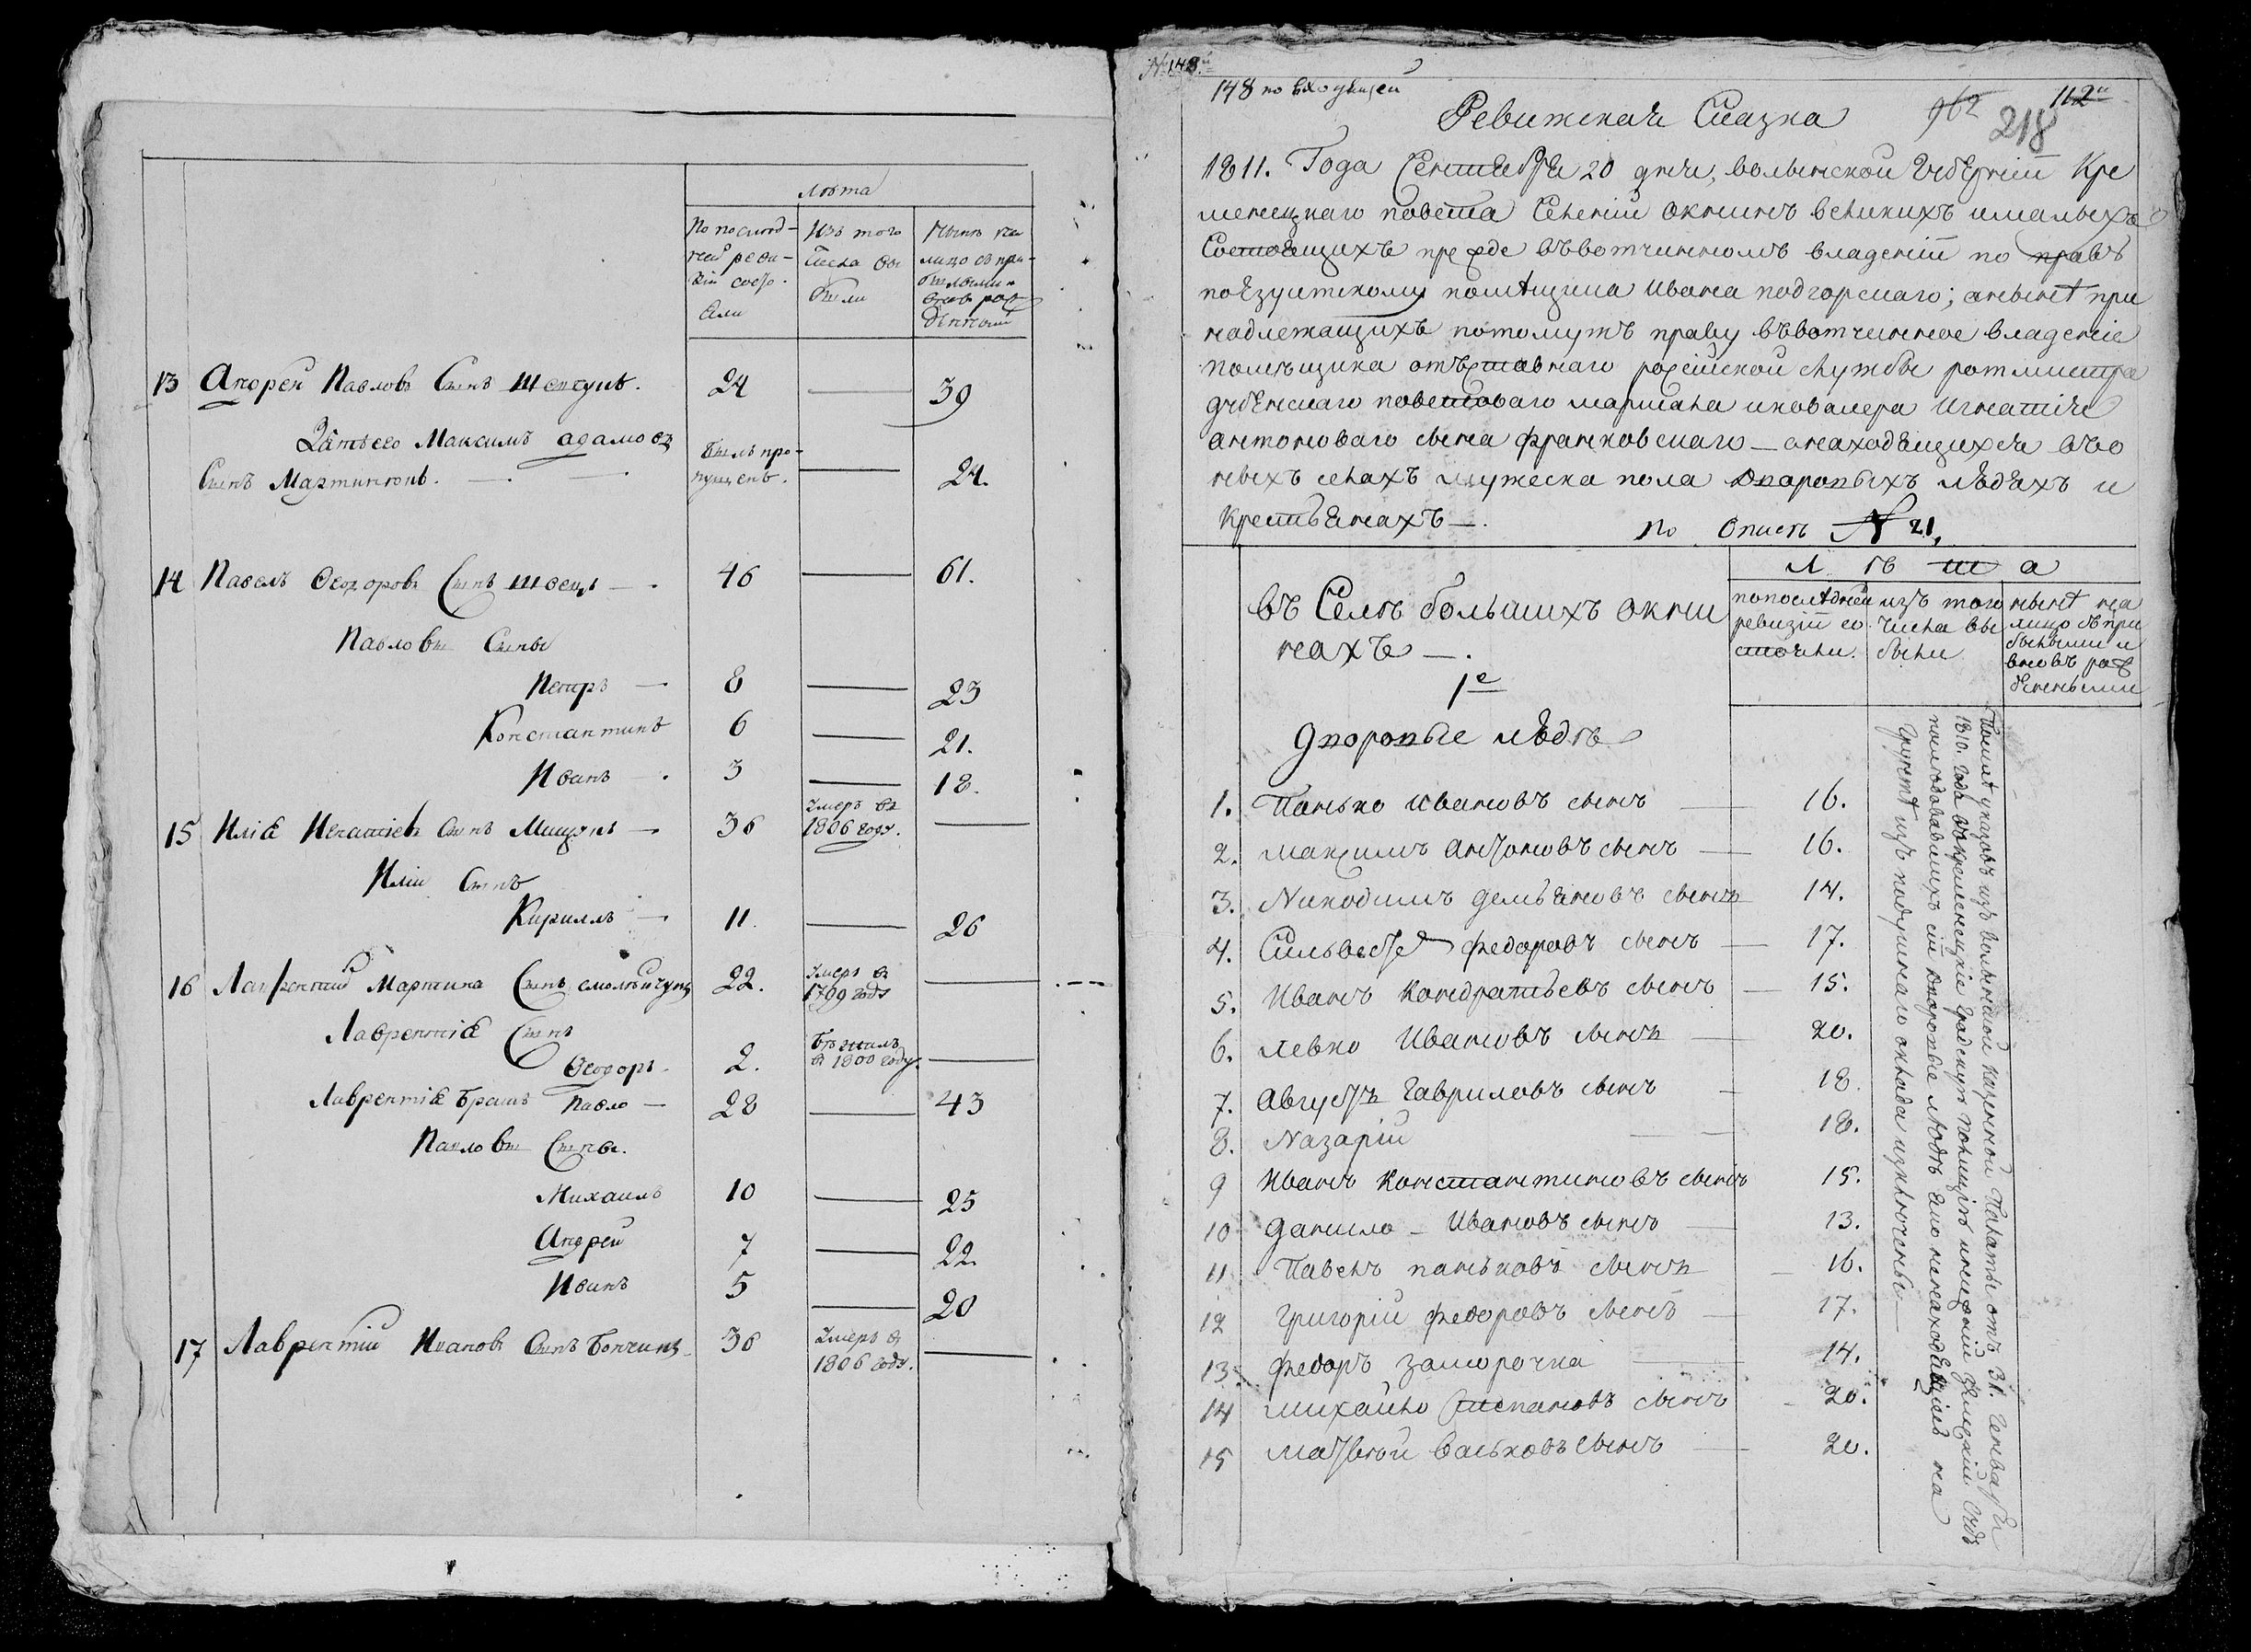 Лѣта
По послѣд-
ней реви-
зіи состо-
яли
Изъ того
числа вы
были
Нынѣ на
лицо съ при-
былыми и
вновь рож
денными
13 Андрей Павловъ Сынъ Шевчукъ. 24 — 39
Зять его Максимъ адамовъ
Сынъ Мартинюкъ. — Былъ про-
пущенъ. — 24.
14 Павелъ Ѳеодоровъ Сынъ Швецъ — 46 — 61.
Павловы Сыны
Петръ — 8 — 23
Константинъ 6 — 21.
Иванъ — 3 — 18.
15 Илія Игнатіевъ Сынъ Мищукъ — 36 Умеръ въ
1806 году. —
Иліи Сынъ
Кириллъ — 11. — 26
16 Лаврентій Мартина Сынъ 22. Умеръ въ
1799 годѣ —
Лаврентія Сынъ
Ѳеодоръ. 2. Бѣжалъ
въ 1800 году. —
Лаврентія Братъ Павло — 28 — 43
Павловы Сыны.
Михаилъ 10 — 25
Андрей 7 — 22.
Иванъ 5 — 20
17 Лаврентій Ивановъ Сынъ 36 Умеръ въ
1806 году. —
№ 148.й
148 по входящей
Ревижская Сказка 962 112й
218
1811. Года Сентября 20 дня, волынской губерніи Кре
менецкаго повета Селеній окнинъ великихъ ималыхъ
Состоящихъ прежде въвотчинномъ владеніи по правъ
поезуитскому помѣщика Ивана подгорскаго; анынѣ при
надлежащихъ потомужъ праву въвотчинное владеніе
помѣщика отъставнаго росейской службы ротмистра
дубенскаго поветоваго маршала икавалера игнатія
антоноваго сына франковскаго — онаходящихся въо
ныхъ селахъ мужеска пола дворовыхъ людяхъ и
крестьянахъ —. По Описѣ № 21.
въ Селѣ большихъ окни
нахъ —.
Л ѣ т а
попослѣдней
ревизіи со
стояли.
изъ того
числа вы
были
нынѣ на
лицо съ при
былыми и
вновъ рож
денными
1е
дворовые людѣ
1. Панько ивановъ сынъ — 16.
2. максимъ антоновъ сынъ — 16.
3. Никодимъ демьяновъ сынъ — 14.
4. Сильвестръ федоровъ сынъ — 17.
5. Иванъ кондратьевъ сынъ — 15.
6. левко Ивановъ сынъ — 20.
7. Августъ Гавриловъ сынъ — 18.
8. Назарій — 18.
9 Иванъ константиновъ сынъ 15.
10 данило — Ивановъ сынъ — 13.
11 Павелъ паньковъ сынъ — 16.
12 григорій федоровъ сынъ — 17.
13. федоръ заморочка — 14.
14 михайло степановъ сынъ — 20.
15 матвѣй васьковъ сынъ — 20.
Помлѣ указовъ изъ волынской казенной Палаты отъ 31. генваря
1810. года въкременецкіе градскую полицію инижній земскій Судъ
последовавшихъ сіи дворовые людѣ яко ненаходящіесь на
грунтѣ изъ подушнаго оклада изключены —